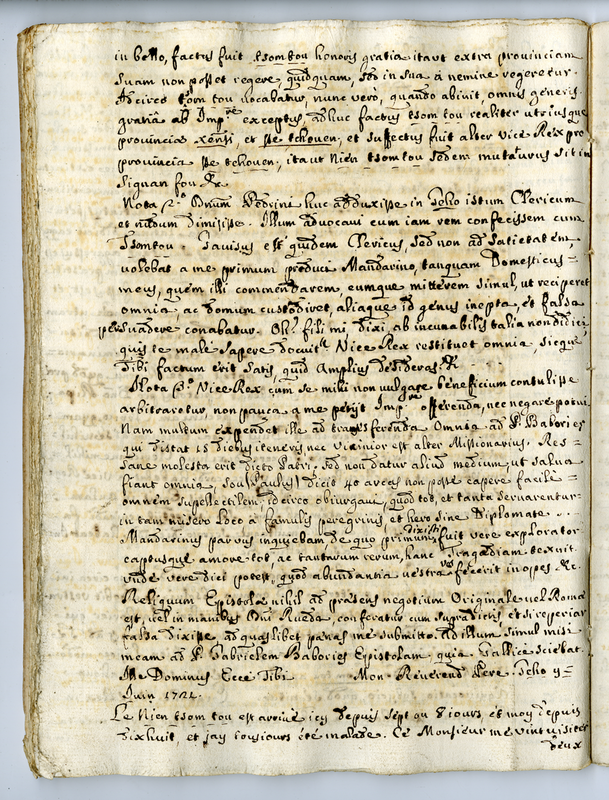 in bello, factus fuit tsom tou honoris gratia itaut extra provinciam
suam non posset regere quidquam, sed in sua à nemine regeretur.
Idcirco tsom tou vocabatur, nunc verò, quando abivit, omnis generis
gratiâ ab Imp.re exceptus, adhuc factus tsom tou realiter utriusque
provinciæ xensi, et se tchouen, et suffectus fuit alter Vice Rex pro
provincia se tchouen, itaut Nien tsom tou sedem mutaturus sit in
Signan fou &c
Nota 2.o Dnum Pedrini huc adduxisse in Jeho istum Clericum
et nudum dimisisse. Illum advocavi cum iam rem confecissem cum
Tsomtou. Gavisus est quidem Clericus, sed non ad satietatem
volebat a me primum produci Mandarino, tanquam Domesticus
meus, quem illi commendarem, eumque mitterem simul, ut reciperet
omnia, ac domum custodiret, aliaque id genus inepta, et falsa
persuadere conabatur. Oh! fili mi, dixi, ab incunabilis talia non didici,
quis te male sapere docuit? Vice Rex restituet omnia, sicque
tibi factum erit satis, quid amplius desideras? &c
Nota 3.o Vice Rex cùm se mihi non vulgare beneficium contulisse
arbitraretur, non pauca a me petijt Imp.ri offerenda, nec negare potui.
Nam multum expendet ille ad transferenda omnia ad P. Babories
qui distat 15 diebus itineris, nec vicinior est alter Missionarius. Res
sane molesta erit dicto Patri. Sed non datur aliud medium, ut salva
fiant omnia, sou (Paulus) dicit 40 arcas non posse capere facile
omnem supellectilem, idcirco obiurgavi, quod tot, et tanta servarentur
in tam misero loco à famulis peregrinis, et hero sine Diplomate.
Mandarinus parvus inquiebam de quo primum dixisti, fuit vere explorator
captusque amore tot, ac tantarum rerum, hanc Tragædiam texuit
unde vere dici potest, quod abundantia vestra vos fecerit inopes &c.
Reliquum Epistolæ nihil ad præsens negotium. Originale vel Romæ
est, vel in manibus Dni Rueda, conferatur cum supradictis, et si reperiar
falsa dixisse ad quaslibet pænas me submitto. Ad illum simul misi
meam ad P. Gabrielem Babories Epistolam, quia Gallice sciebat
Ille Dominus. Ecce Tibi Mon Reverend Pere. Jeho 9
Juin 1724.
Le Nien tsom tou est arrivé icy depuis sept ou 8 iours, et moy depuis
dixhuit, et jay tousiours été malade. Ce Monsieur me vint visiter
deux